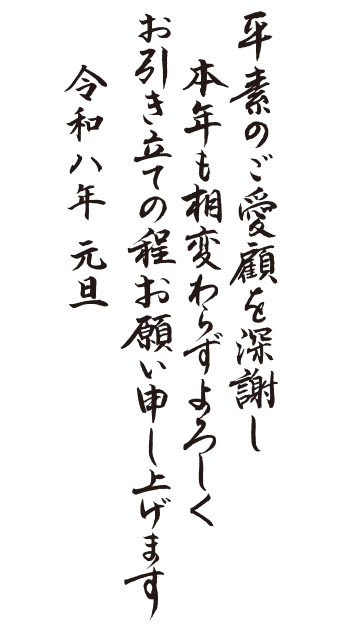 平素のご愛顧を深謝し
本年も相変わらずよろしく
お引き立ての程お願い申し上げます
令和八年 元旦